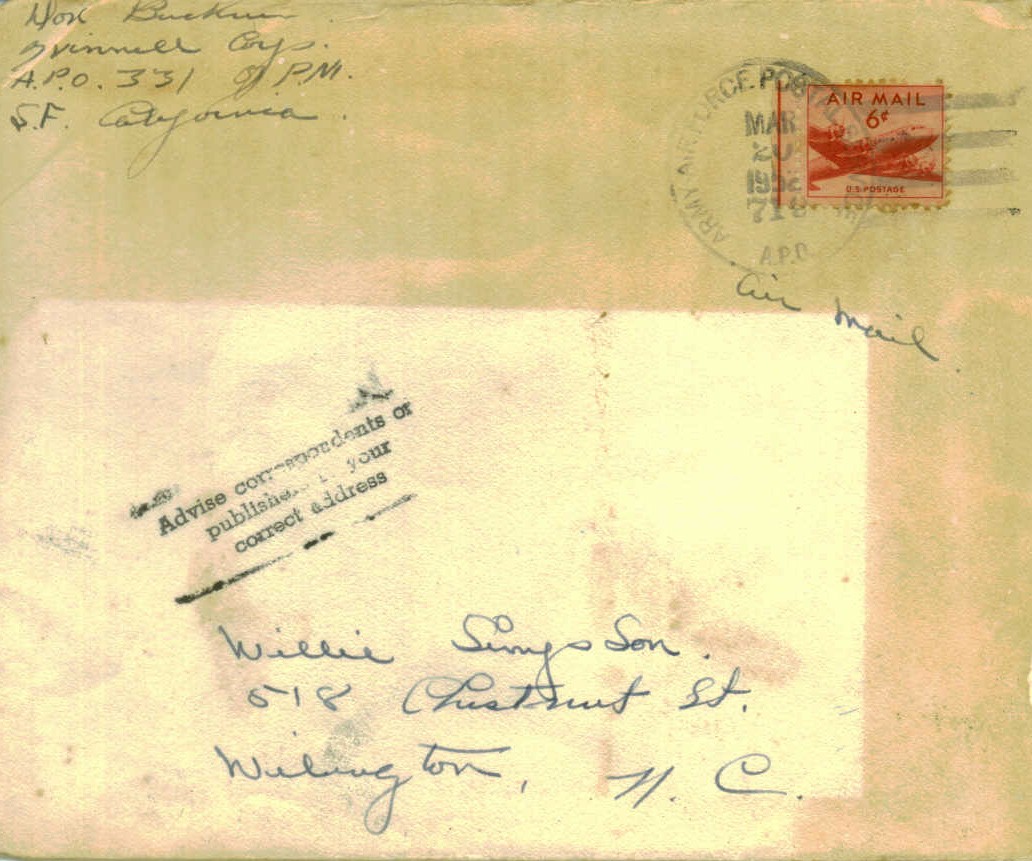 Don
Corp.
A.P.O. 331 % P.M.
S.F. California.
ARMY AIR FORCE POSTAL
MAR
20
1952
A.P.O.
AIR MAIL
6¢
U.S. POSTAGE
Air Mail
Advise correspondents or
publishers your
correct address
Willie
518 Chestnut St.
Wilington, N. C.